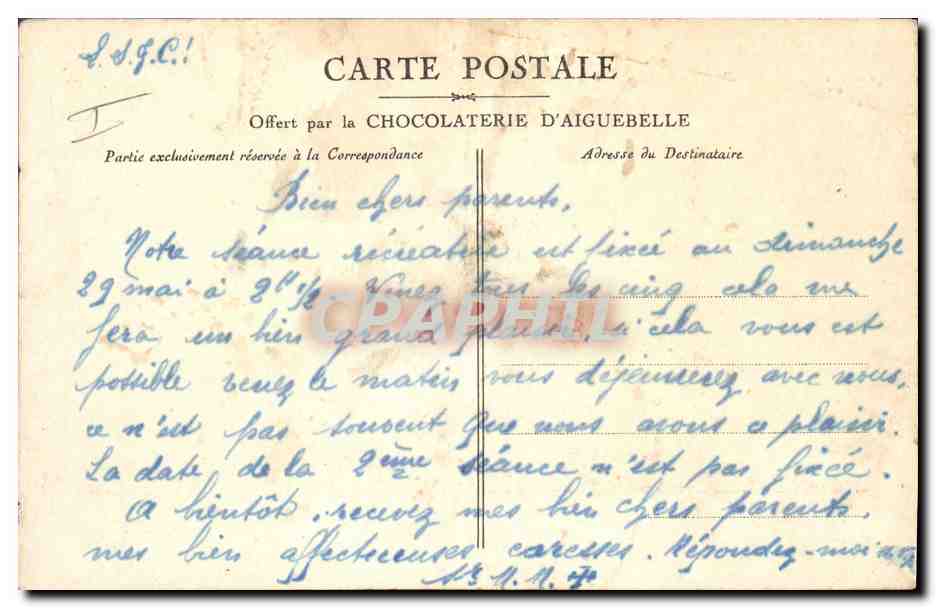 S.S.J.C!
I
CARTE POSTALE
Offert par la CHOCOLATERIE D'AIGUEBELLE
Partie exclusivement réservée à la Correspondance
Adresse du Destinataire
Bien chers parents,
Notre séance récréative est fixée au dimanche
29 mai à 2h 1/2 Venez tous les cinq cela me
fera un bien grand plaisir, si cela vous est
possible venez le matin vous déjeunerez avec nous,
ce n'est pas souvent que nous avons ce plaisir.
La date de la 2ème séance n'est pas fixée.
A bientôt, recevez mes bien chers parents,
mes bien affectueuses caresses. Répondez-moi
Sr M. M.
CPAPHIL